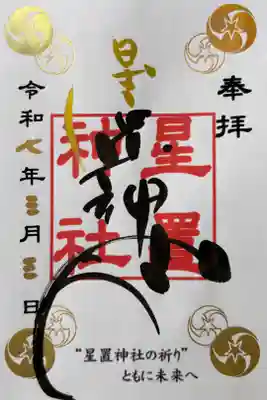 奉拝
星置神社
星置
神社
令和七年三月三日
“星置神社の祈り”
ともに未来へ